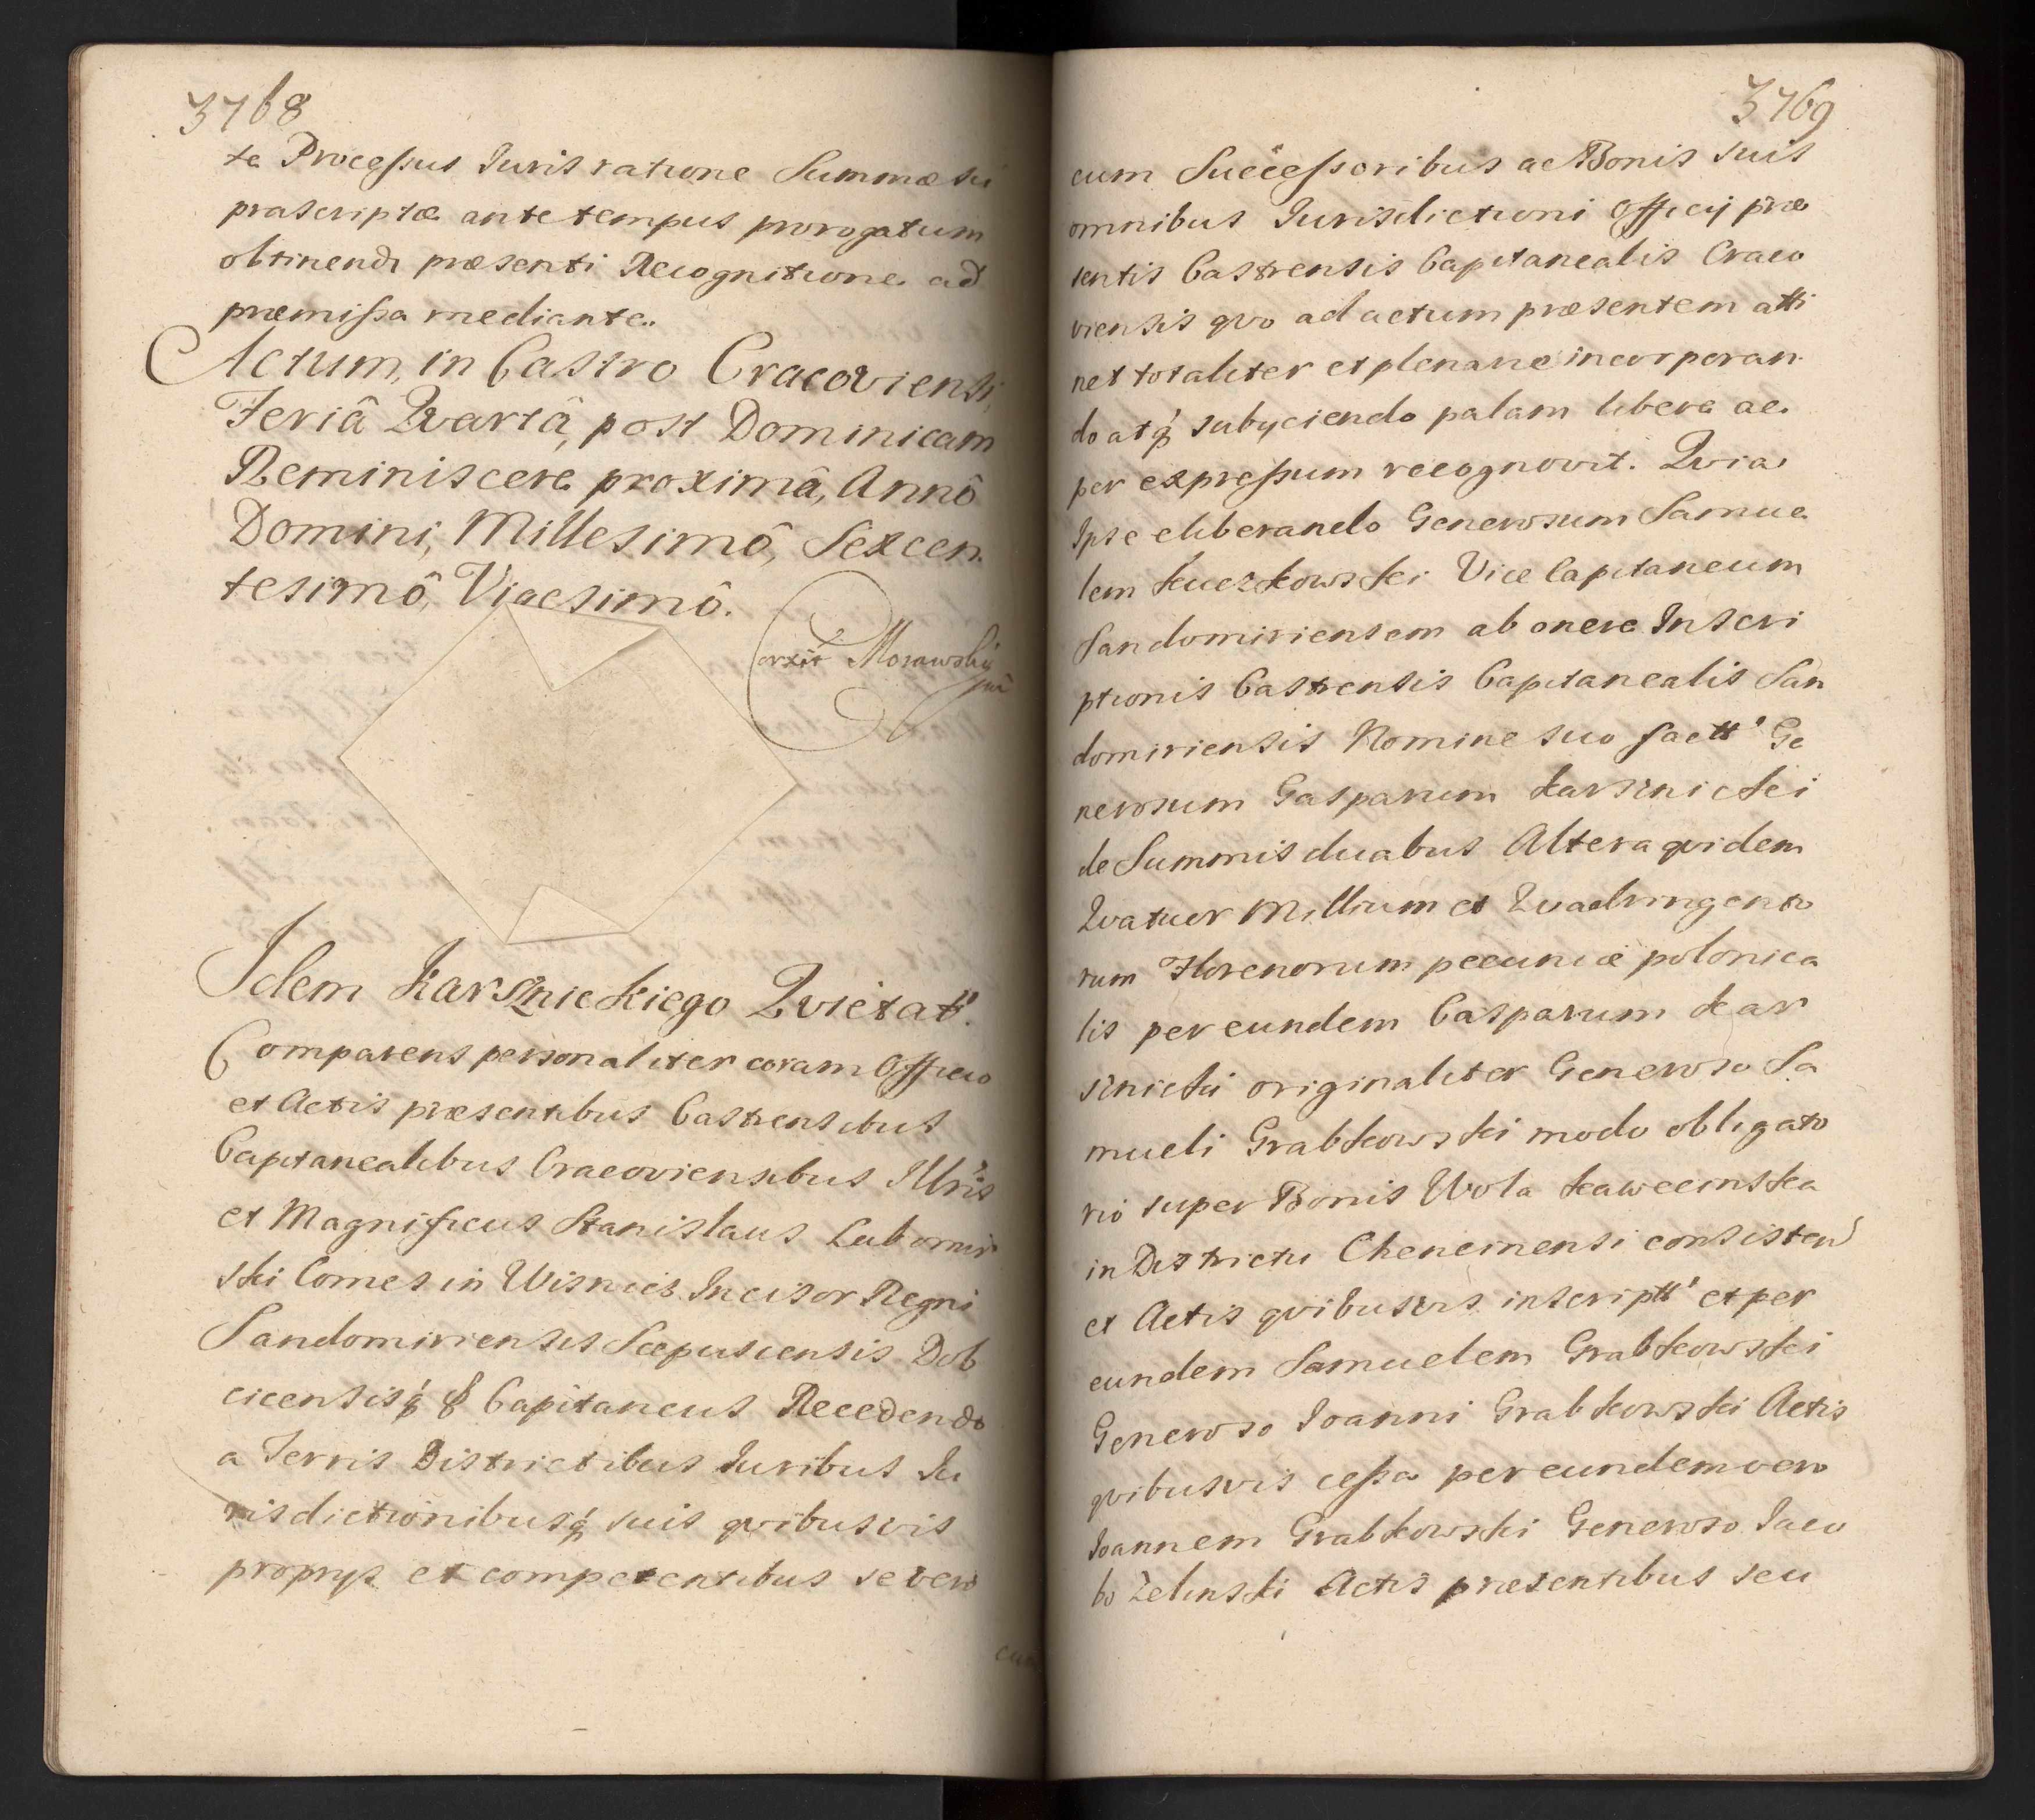 3768
ta Processus Iuris ratione Summæ su
prascriptæ ante tempus prorogatum
obtinendi præsenti Recognitione ad
præmissa mediante.
Actum, in Castro Cracoviensi,
Feriâ Qvartâ, post Dominicam
Reminiscere proximâ, Annô
Domini, Millesimô, Sexcen
tesimô, Vigesimô.
Corxit Morawskij
Idem Karsznickiego Qvietat.
Comparens personaliter coram Officio
et Actis præsentibus Castrensibus
Capitanealibus Cracoviensibus Illris
et Magnificus Stanislaus Lubomir
ski Comes in Wisnicz Incisor Regni
Sandomiriensis Scepusiensis Dob
cicensisq́ & Capitaneus Recedendo
a Terris Districtibus Iuribus Iu
risdictionibusq́ suis qvibusvis
proprys et competentibus se vero
cum
3769
cum Successoribus ac Bonis suis
omnibus Iurisdictioni Officij præ
sentis Castrensis Capitanealis Craco
viensis qvo ad actum præsentem atti
net totaliter et plenarie incorporan
do atq́ subyciendo palam libere ac
per expressum recognovit. Qvia
Ipse eliberando Generosum Samue
lem Kuczkowski Vice Capitaneum
Sandomiriensem ab onere Inscri
ptionis Castrensis Capitanealis San
domiriensis Nomine suo factt' Ge
nerosum Gasparum Karsznicki
de Summis duabus Altera qvidem
Qvatuor Millium et Qvadringento
rum Florenorum pecuniæ polonica
lis per eundem Casparum Kar
sznicki originaliter Generoso Sa
mueli Grabkowski modo obligato
rio super Bonis Wola Kawecinska
in Districtu Chencinensi consisten
et Actis qvibusvis inscriptt' et per
eundem Samuelem Grabkowski
Generoso Ioanni Grabkowski Actis
qvibusvis cessa per eundem vero
Ioannem Grabkowski Generoso Iaco
bo Zelinski Actis præsentibus seu